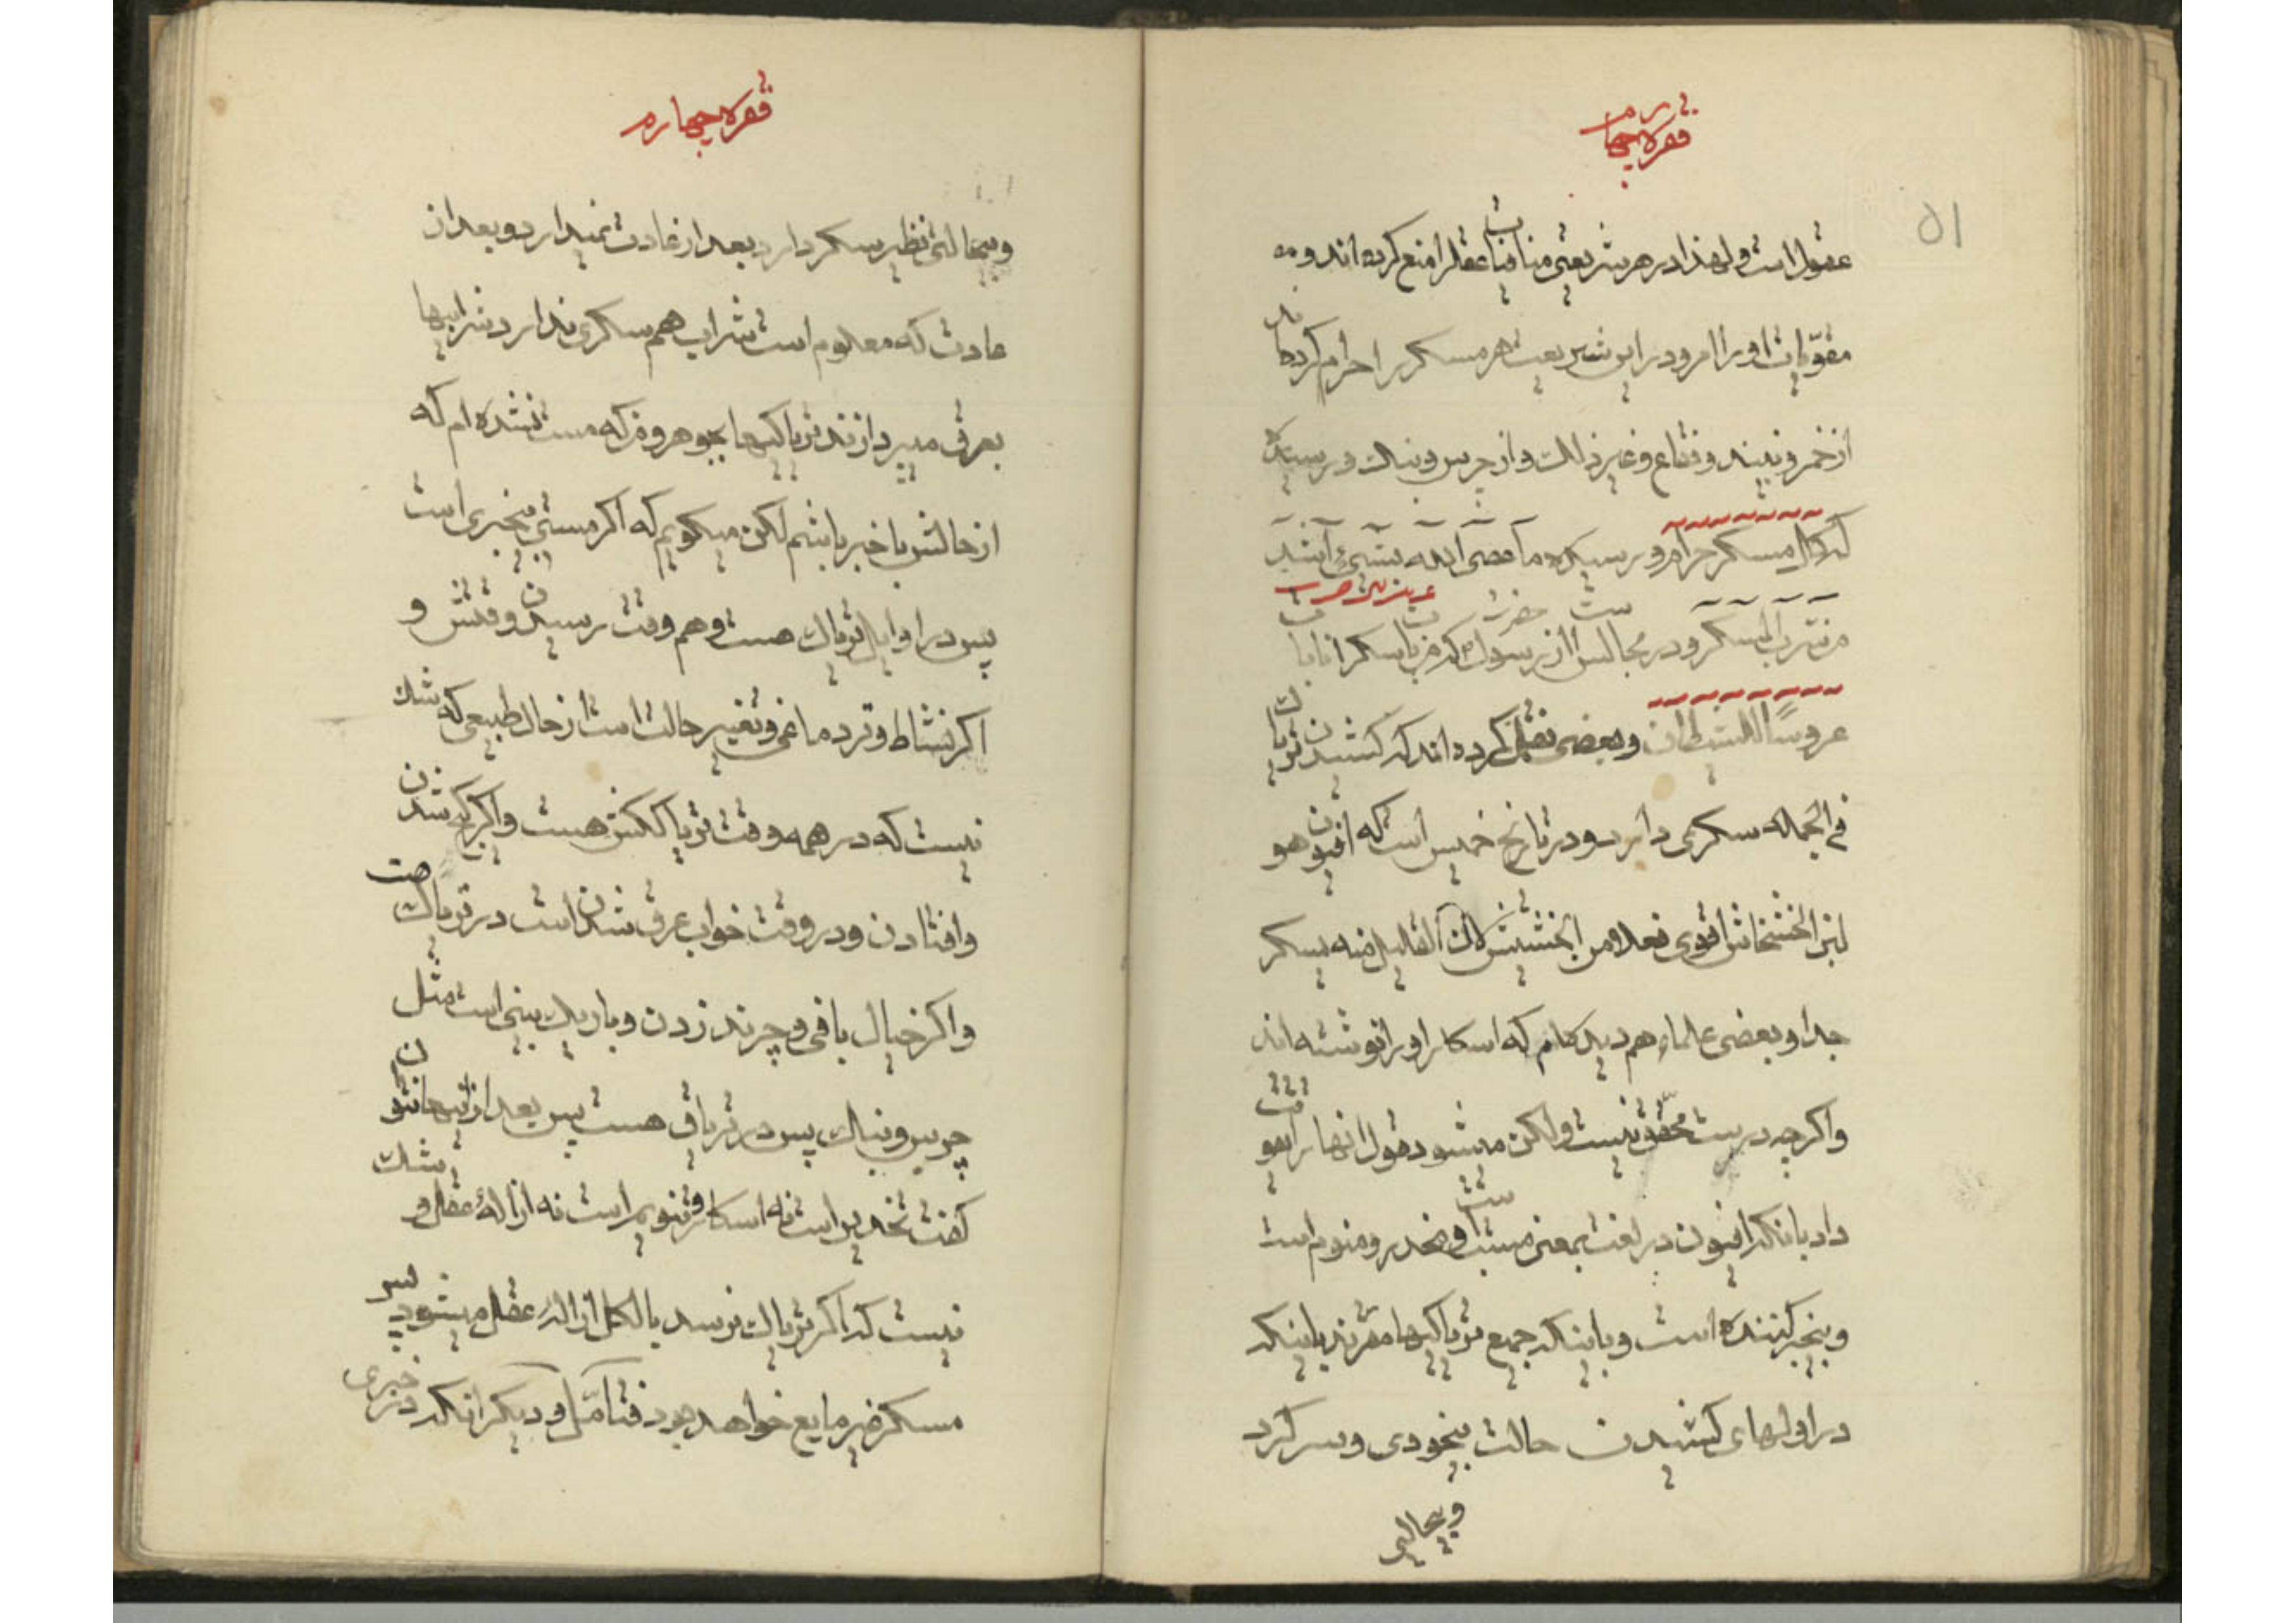 فقره چهارم
۵۱
عقول است و لهذا در هر شریعتی منافیات عقل را منع کرده اند و مه
مقوّیات او را امر و در این شریعت هر مسکر را حرام کرده اند
از خمر و نبیند و فقاع و غیر ذلک و از چرس و بنک و رسیده
که کل مسکر حرام و رسیده ما عصی الله بشیء اشد
من شرب المسکر و در مجالس است از حضرت رسول که من بات سکرانا بات
عروسًا للشیطان و بعضی نقل کرده اند که کشیدن تریاک
فی الجمله سکری دارد و در تاریخ خمیس است که افیون هو
لبن الخشخاش اقوی فعلا من الحشیش لان القلیل منه یسکر
جدا و بعضی علماء هم دیده ام که اسکار او را نوشته اند
و اکرچه درست محقق نیست ولکن میشود قول انها را بقوت
داد بانکه افیون در لغت بمعنی مسبت است و مخدر و منوم است
و بیخبر کننده است و باینکه جمیع تریاکیها مقرند باینکه
در اولهای کشیدن حالت بیخودی و سر کرد
و بیحالتی
فقره چهارم
و بیحالتی نظیر سکر دارد بعد از عادت نمیدارد و بعد از
عادت که معلوم است شراب هم سکری ندارد شرابیها
بعرق میپردازند تریاکیها بجوهر و من که مست نشده ام که
از حالش با خبر باشم لکن میکویم که اکر مستی بیخبری است
پس در اوایل تریاک هست و هم وقت رسیدن وقتش و
اکر نشاط و تر دماغی و تغییر حالت است از حال طبیعی که شک
نیست که در همه وقت تریاک کش هست و اکر کج شدن
و افتادن و در وقت خواب غرق شدن است در تریاک هست
و اکر خیال بافی و چرند زدن و باریک بینی است مثل
چرس و بنک پس در تریاق هست پس بعد از اینها نتوان
کفت تخدیر است نه اسکار و تنویم است نه ازالهٔ عقل و شک
نیست که اکر تریاک نرسد بالکل ازاله عقل میشود پس
مسکر غیر مایع خواهد بود فتامّل و دیکر انکه در خبری